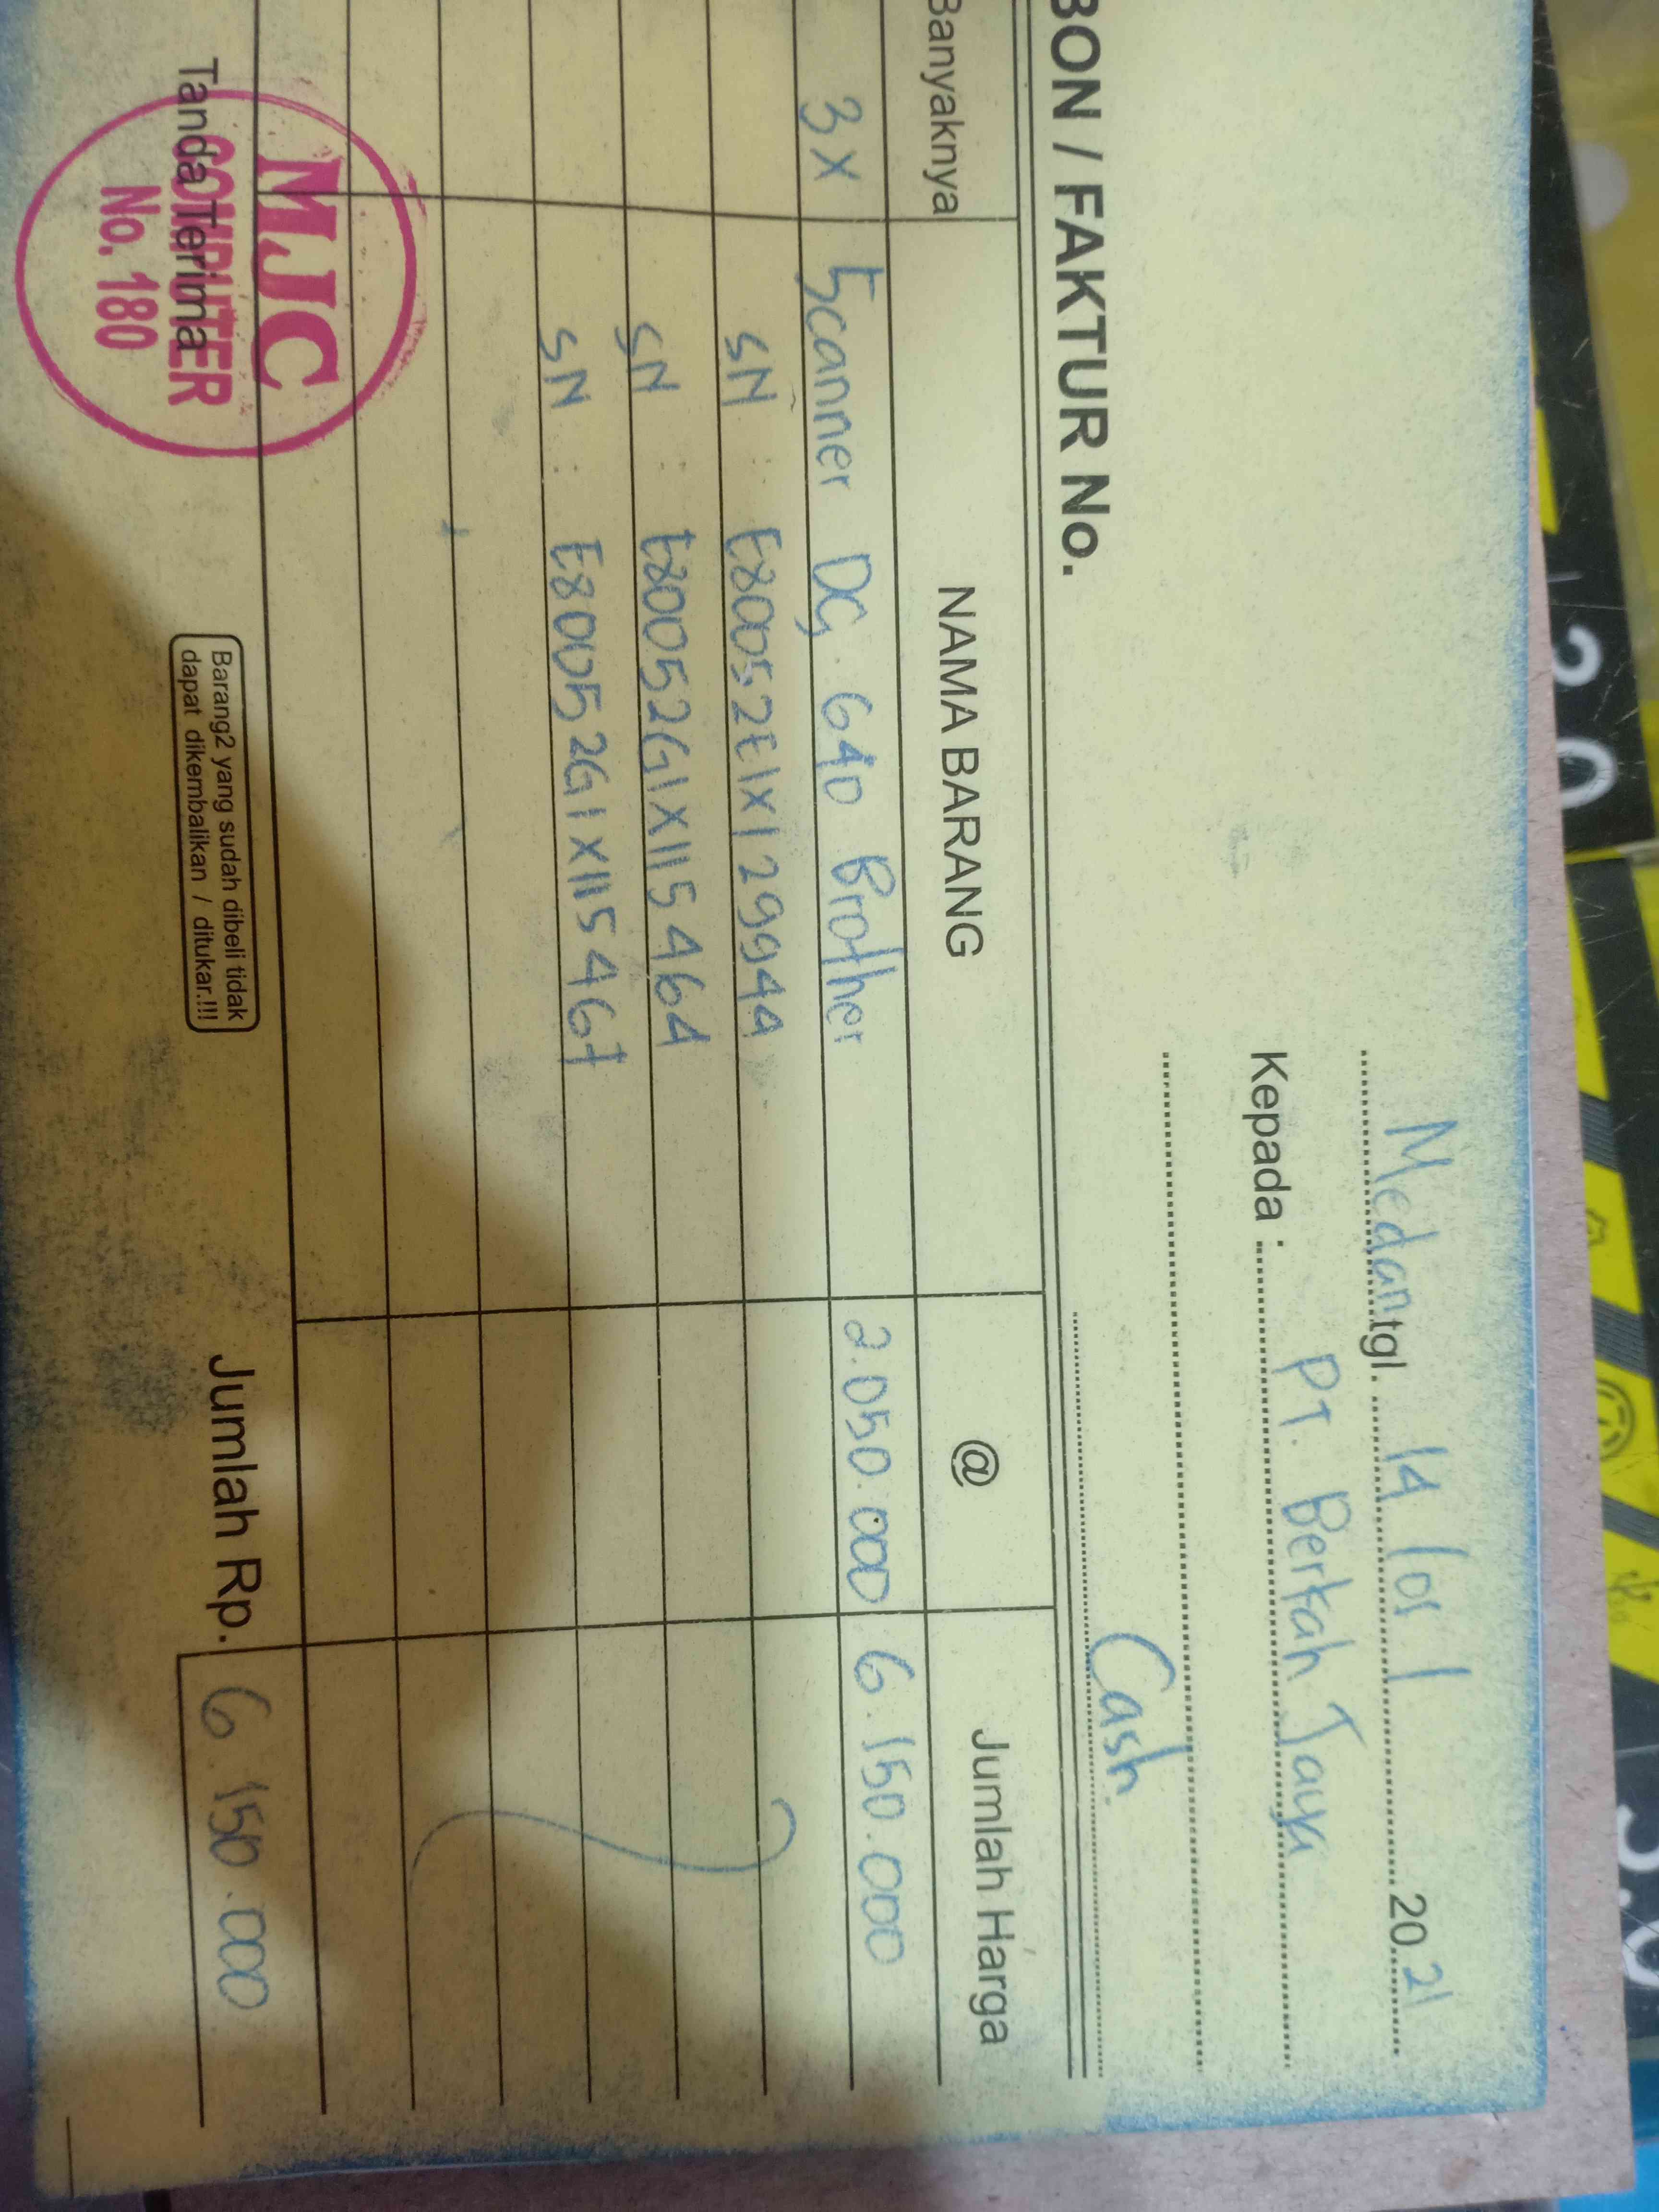 Medan tgl. 14 / 01 / 2021
Kepada : PT. Berkah Jaya
BON / FAKTUR No. Cash.
Banyaknya NAMA BARANG @ Jumlah Harga
3 x Scanner DS. 640 Brother 2.050.000 6.150.000
SN : E80052E1X129944
SN : E80052G1X115464
SN : E80052G1X115467
Tanda Terima
MJC
COMPUTER
No. 180
Barang2 yang sudah dibeli tidak
dapat dikembalikan / ditukar.!!!
Jumlah Rp. 6.150.000